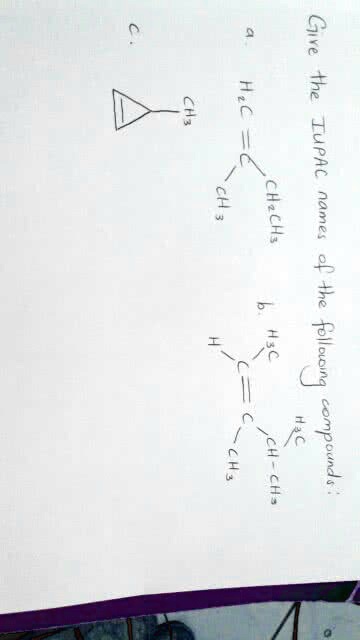 Give the IUPAC names of the following compounds:
a.
H2C=C
CH2CH3
CH3
b.
H3C
H
C=C
H3C
CH-CH3
CH3
c.
CH3